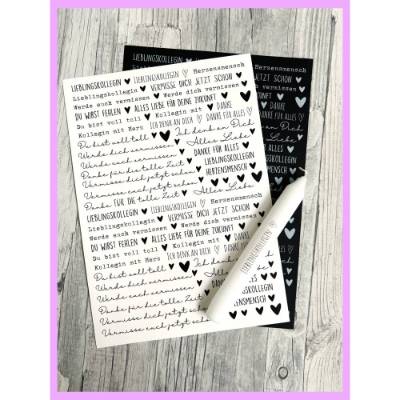 LIEBLINGSKOLLEGIN ♥ LIEBLINGSKOLLEGIN ♡ Herzensmensch
Lieblingskollegin ♥ VERMISSE DICH JETZT SCHON ♥
Werde euch vermissen ♥ Werde dich vermissen ♥
DU WIRST FEHLEN ♥ ALLES LIEBE FÜR DEINE ZUKUNFT ♥
Du bist voll toll ♥ Kollegin mit Herz ♥ DANKE
Kollegin mit Herz ICH DENK AN DICH ♥ DANKE FÜR ALLES
Du bist voll toll ♥ Ich denk an Dich
Werde dich vermissen ♥ Alles Liebe
Werde euch vermissen ♥ DANKE FÜR ALLES ♥
Danke für die tolle Zeit ♥ LIEBLINGSKOLLEGIN
Vermisse dich jetzt schon ♥ HERZENSMENSCH
Vermisse euch jetzt schon ♥ Alles Liebe
Danke FÜR DIE tolle Zeit
LIEBLINGSKOLLEGIN ♥ LIEBLINGSKOLLEGIN ♡ Herzensmensch
Lieblingskollegin ♥ VERMISSE DICH JETZT SCHON
Werde euch vermissen ♥ Werde dich vermissen
DU WIRST FEHLEN ♥ ALLES LIEBE FÜR DEINE ZUKUNFT
Du bist voll toll ♥ Kollegin mit Herz
ICH DENK AN DICH ♥
Du bist voll toll ♥ Ich denk
Werde dich vermissen ♥
Werde euch vermissen
Danke für die tolle Zeit
Vermisse dich jetzt schon
Vermisse euch jetzt schon
KOLLEGIN
HERZENSMENSCH
LIEBLINGSKOLLEGIN
Herzensmensch
JETZT SCHON
vermissen
DANKE
DANKE FÜR ALLES
an Dich
LIEBLINGSKOLLEGIN
HERZENSMENSCH